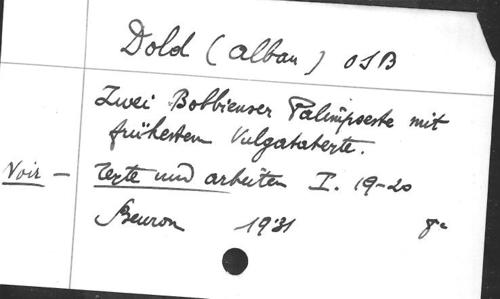 Dold (Alban) OSB
Zwei Bobbienser Palimpseste mit
frühestem Vulgatatexte.
Voir – Texte und arbeiten I. 19-20
Beuron 1931 8°